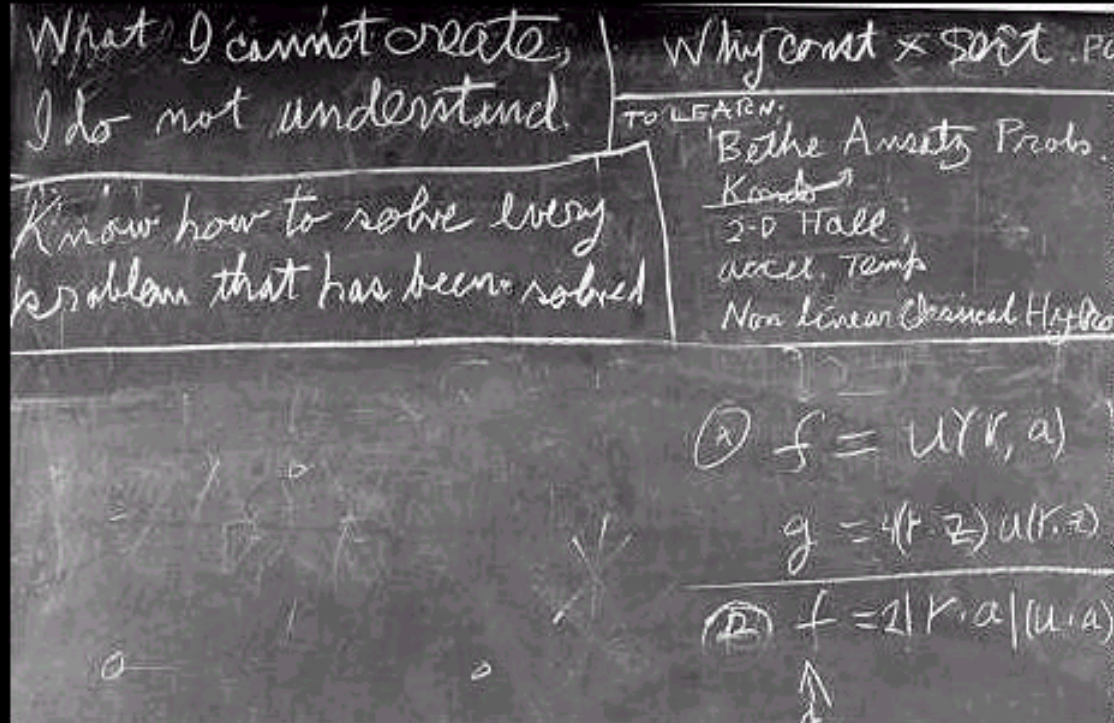 What I cannot create,
I do not understand.
Know how to solve every
problem that has been solved
Why const × sort . Po
TO LEARN:
Bethe Ansatz Probs.
Kondo
2-D Hall
accel. Temp
Non Linear Classical Hydro
Ⓐ f = U(r, a)
g = 4(r·z) u(r·z)
f = 2|r·a|(u·a)